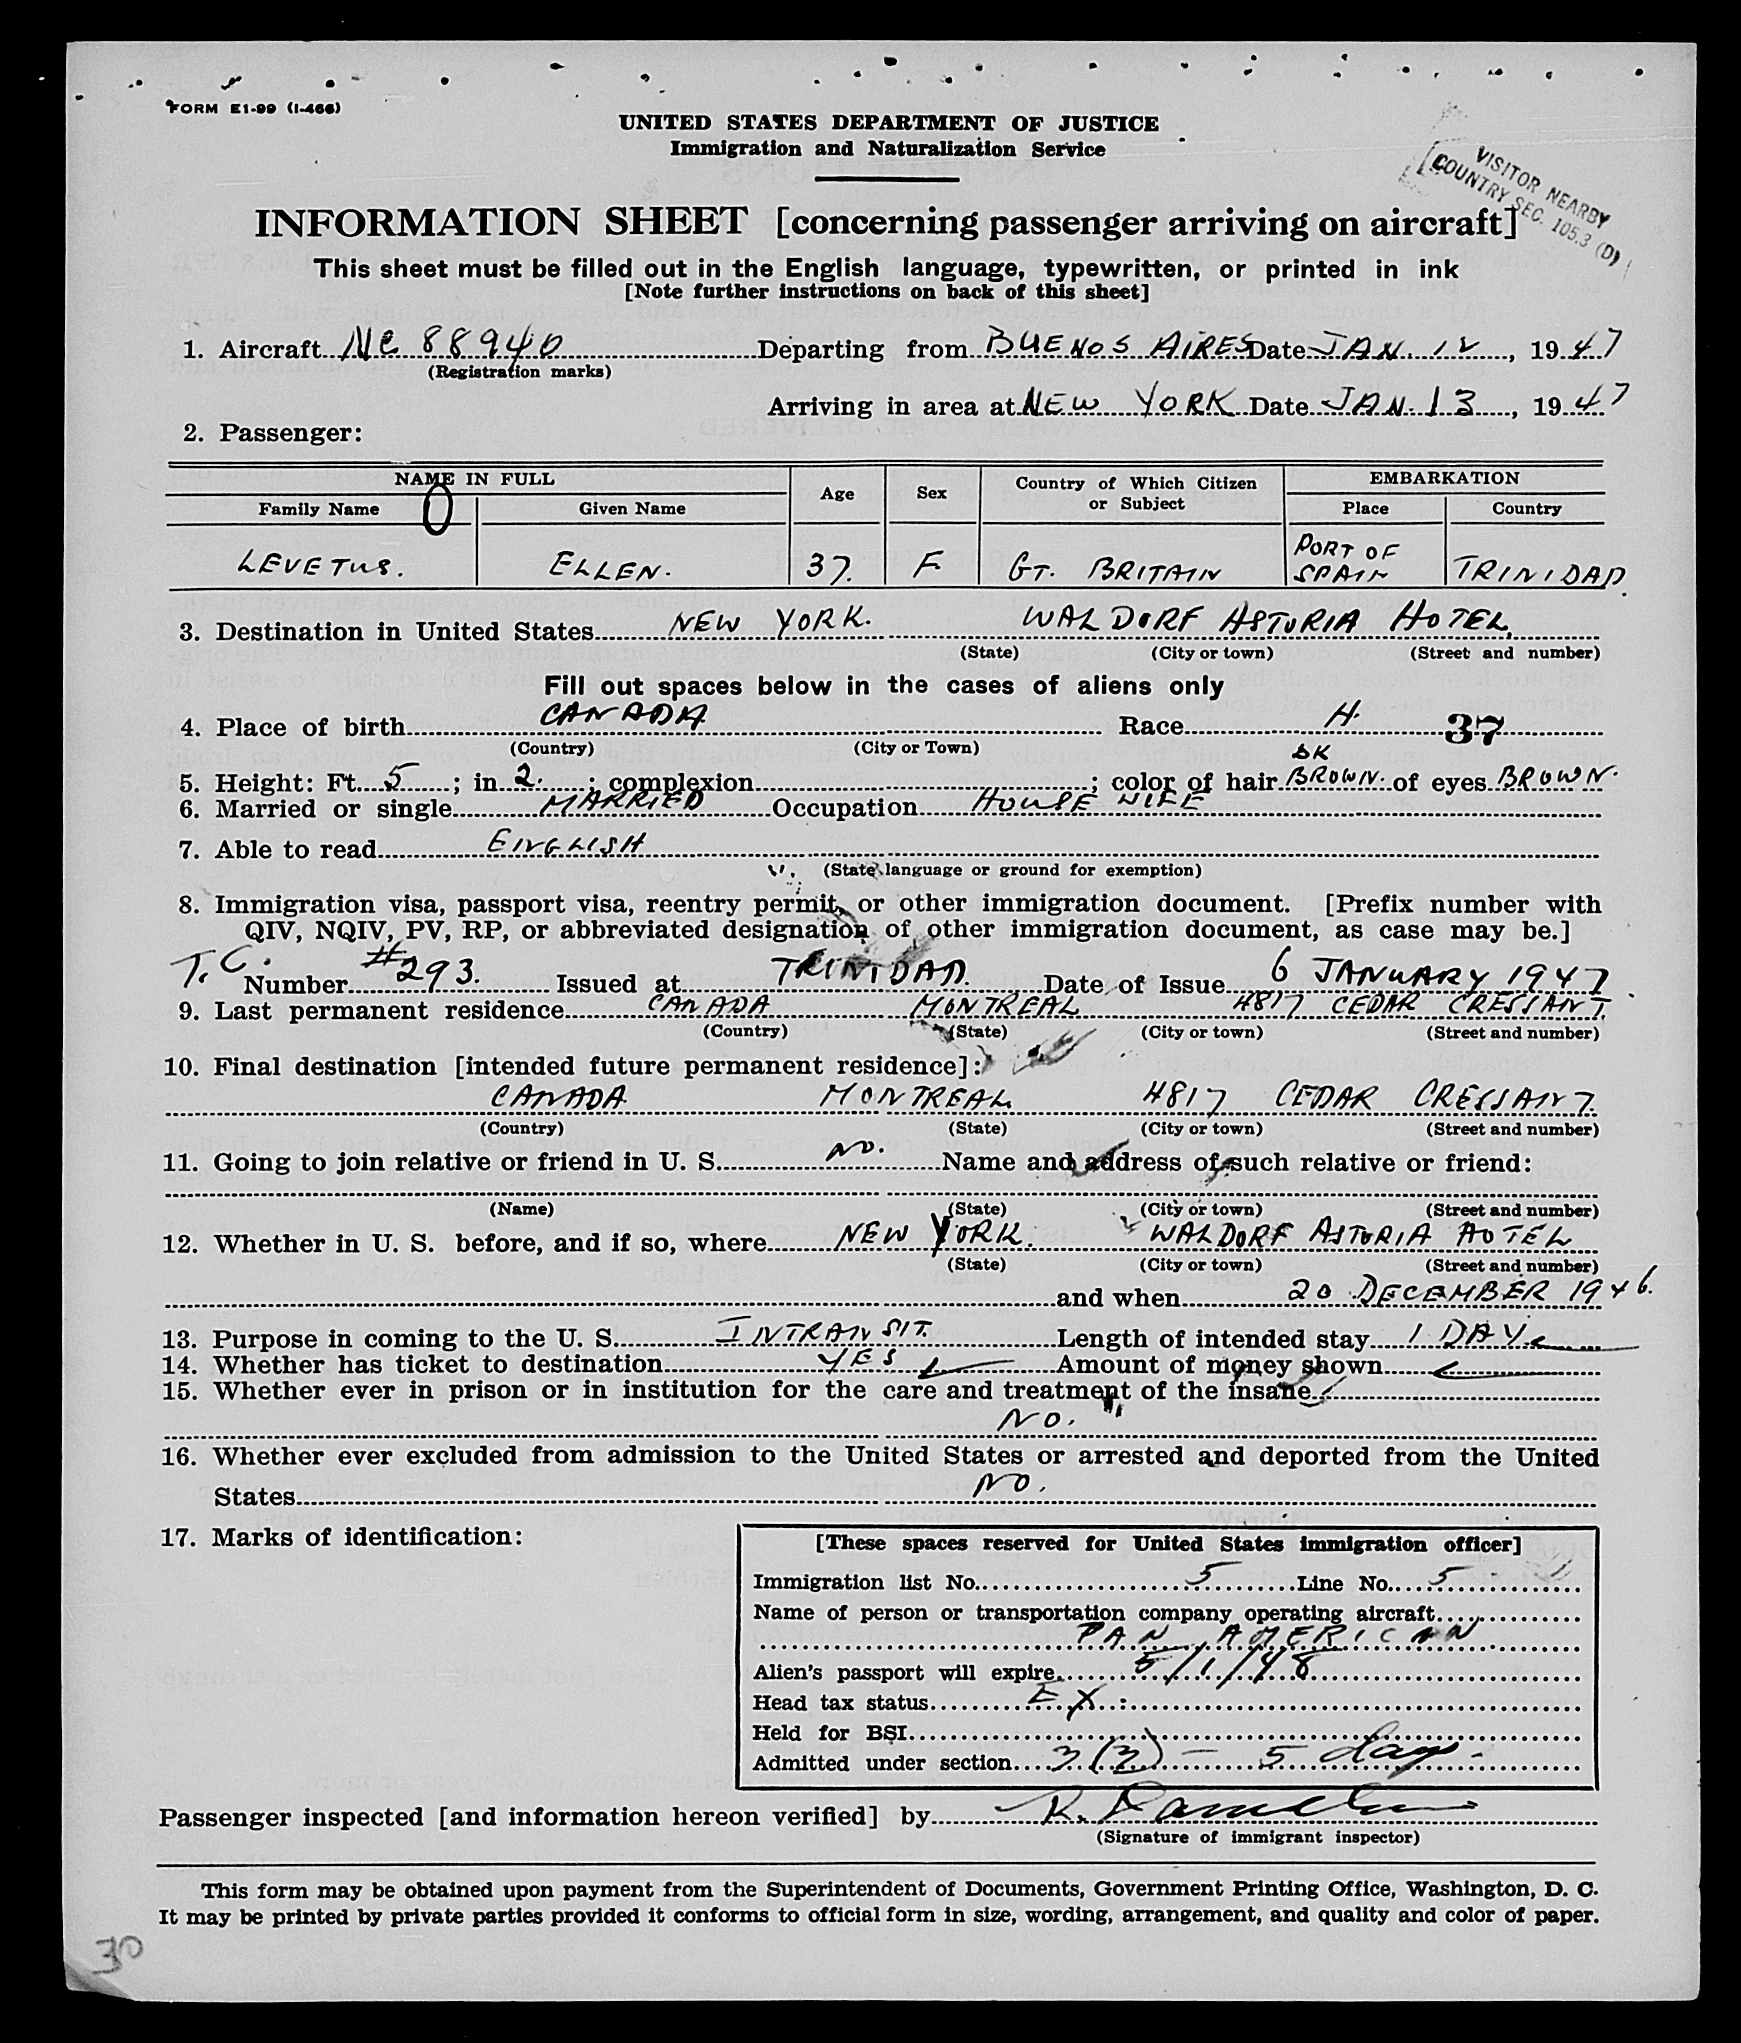 FORM E1-99 (I-466)
UNITED STATES DEPARTMENT OF JUSTICE
Immigration and Naturalization Service
VISITOR NEARBY
COUNTRY SEC. 105.3 (D)
INFORMATION SHEET [concerning passenger arriving on aircraft]
This sheet must be filled out in the English language, typewritten, or printed in ink
[Note further instructions on back of this sheet]
1. Aircraft NC 88940 Departing from BUENOS AIRES Date JAN. 12, 1947
(Registration marks)
Arriving in area at NEW YORK Date JAN. 13, 1947
2. Passenger:
NAME IN FULL Age Sex Country of Which Citizen or Subject EMBARKATION
Family Name Given Name Place Country
LEVETUS. ELLEN. 37. F GT. BRITAIN PORT OF SPAIN TRINIDAD.
3. Destination in United States NEW YORK. WALDORF ASTORIA HOTEL.
(State) (City or town) (Street and number)
Fill out spaces below in the cases of aliens only
4. Place of birth CANADA Race H. 37
(Country) (City or Town)
5. Height: Ft. 5; in 2.; complexion; color of hair DK BROWN. of eyes BROWN.
6. Married or single MARRIED Occupation HOUSE WIFE
7. Able to read ENGLISH
(State language or ground for exemption)
8. Immigration visa, passport visa, reentry permit, or other immigration document. [Prefix number with
QIV, NQIV, PV, RP, or abbreviated designation of other immigration document, as case may be.]
T.C. Number #293. Issued at TRINIDAD. Date of Issue 6 JANUARY 1947.
9. Last permanent residence CANADA MONTREAL 4817 CEDAR CRESSANT.
(Country) (State) (City or town) (Street and number)
10. Final destination [intended future permanent residence]:
CANADA MONTREAL 4817 CEDAR CRESSANT.
(Country) (State) (City or town) (Street and number)
11. Going to join relative or friend in U. S. NO. Name and address of such relative or friend:
(Name) (State) (City or town) (Street and number)
12. Whether in U. S. before, and if so, where NEW YORK. WALDORF ASTORIA HOTEL
(State) (City or town) (Street and number)
and when 20 DECEMBER 1946.
13. Purpose in coming to the U. S. INTRANSIT. Length of intended stay 1 DAY.
14. Whether has ticket to destination YES Amount of money shown
15. Whether ever in prison or in institution for the care and treatment of the insane
NO.
16. Whether ever excluded from admission to the United States or arrested and deported from the United
States NO.
17. Marks of identification:
[These spaces reserved for United States immigration officer]
Immigration list No. 5 Line No. 5
Name of person or transportation company operating aircraft
PAN AMERICAN
Alien's passport will expire 5/1/48
Head tax status EX.
Held for BSI
Admitted under section 3(3) - 5 days.
Passenger inspected [and information hereon verified] by R.
(Signature of immigrant inspector)
This form may be obtained upon payment from the Superintendent of Documents, Government Printing Office, Washington, D. C.
It may be printed by private parties provided it conforms to official form in size, wording, arrangement, and quality and color of paper.
30